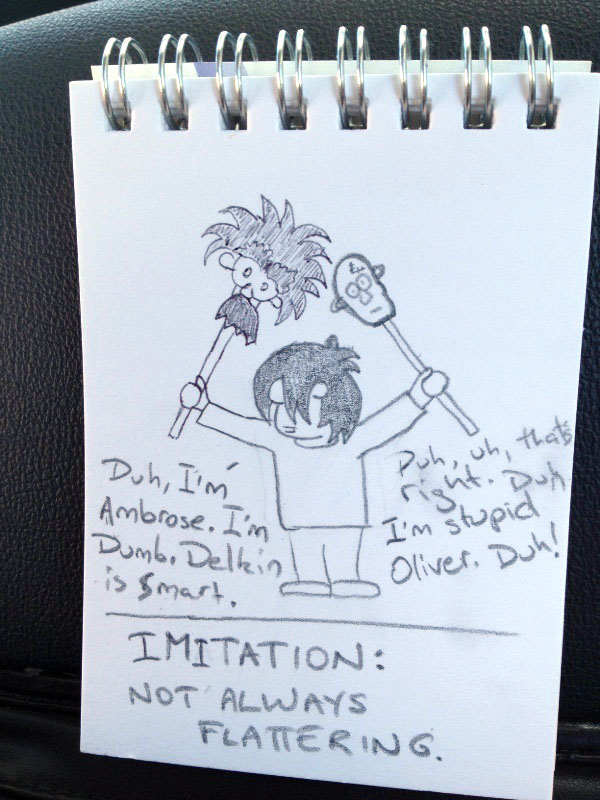 Duh, I'm
Ambrose. I'm
Dumb. Delkin
is $mart.
Duh, uh, that's
right. Duh
I'm stupid
Oliver. Duh!
IMITATION:
NOT ALWAYS
FLATTERING.